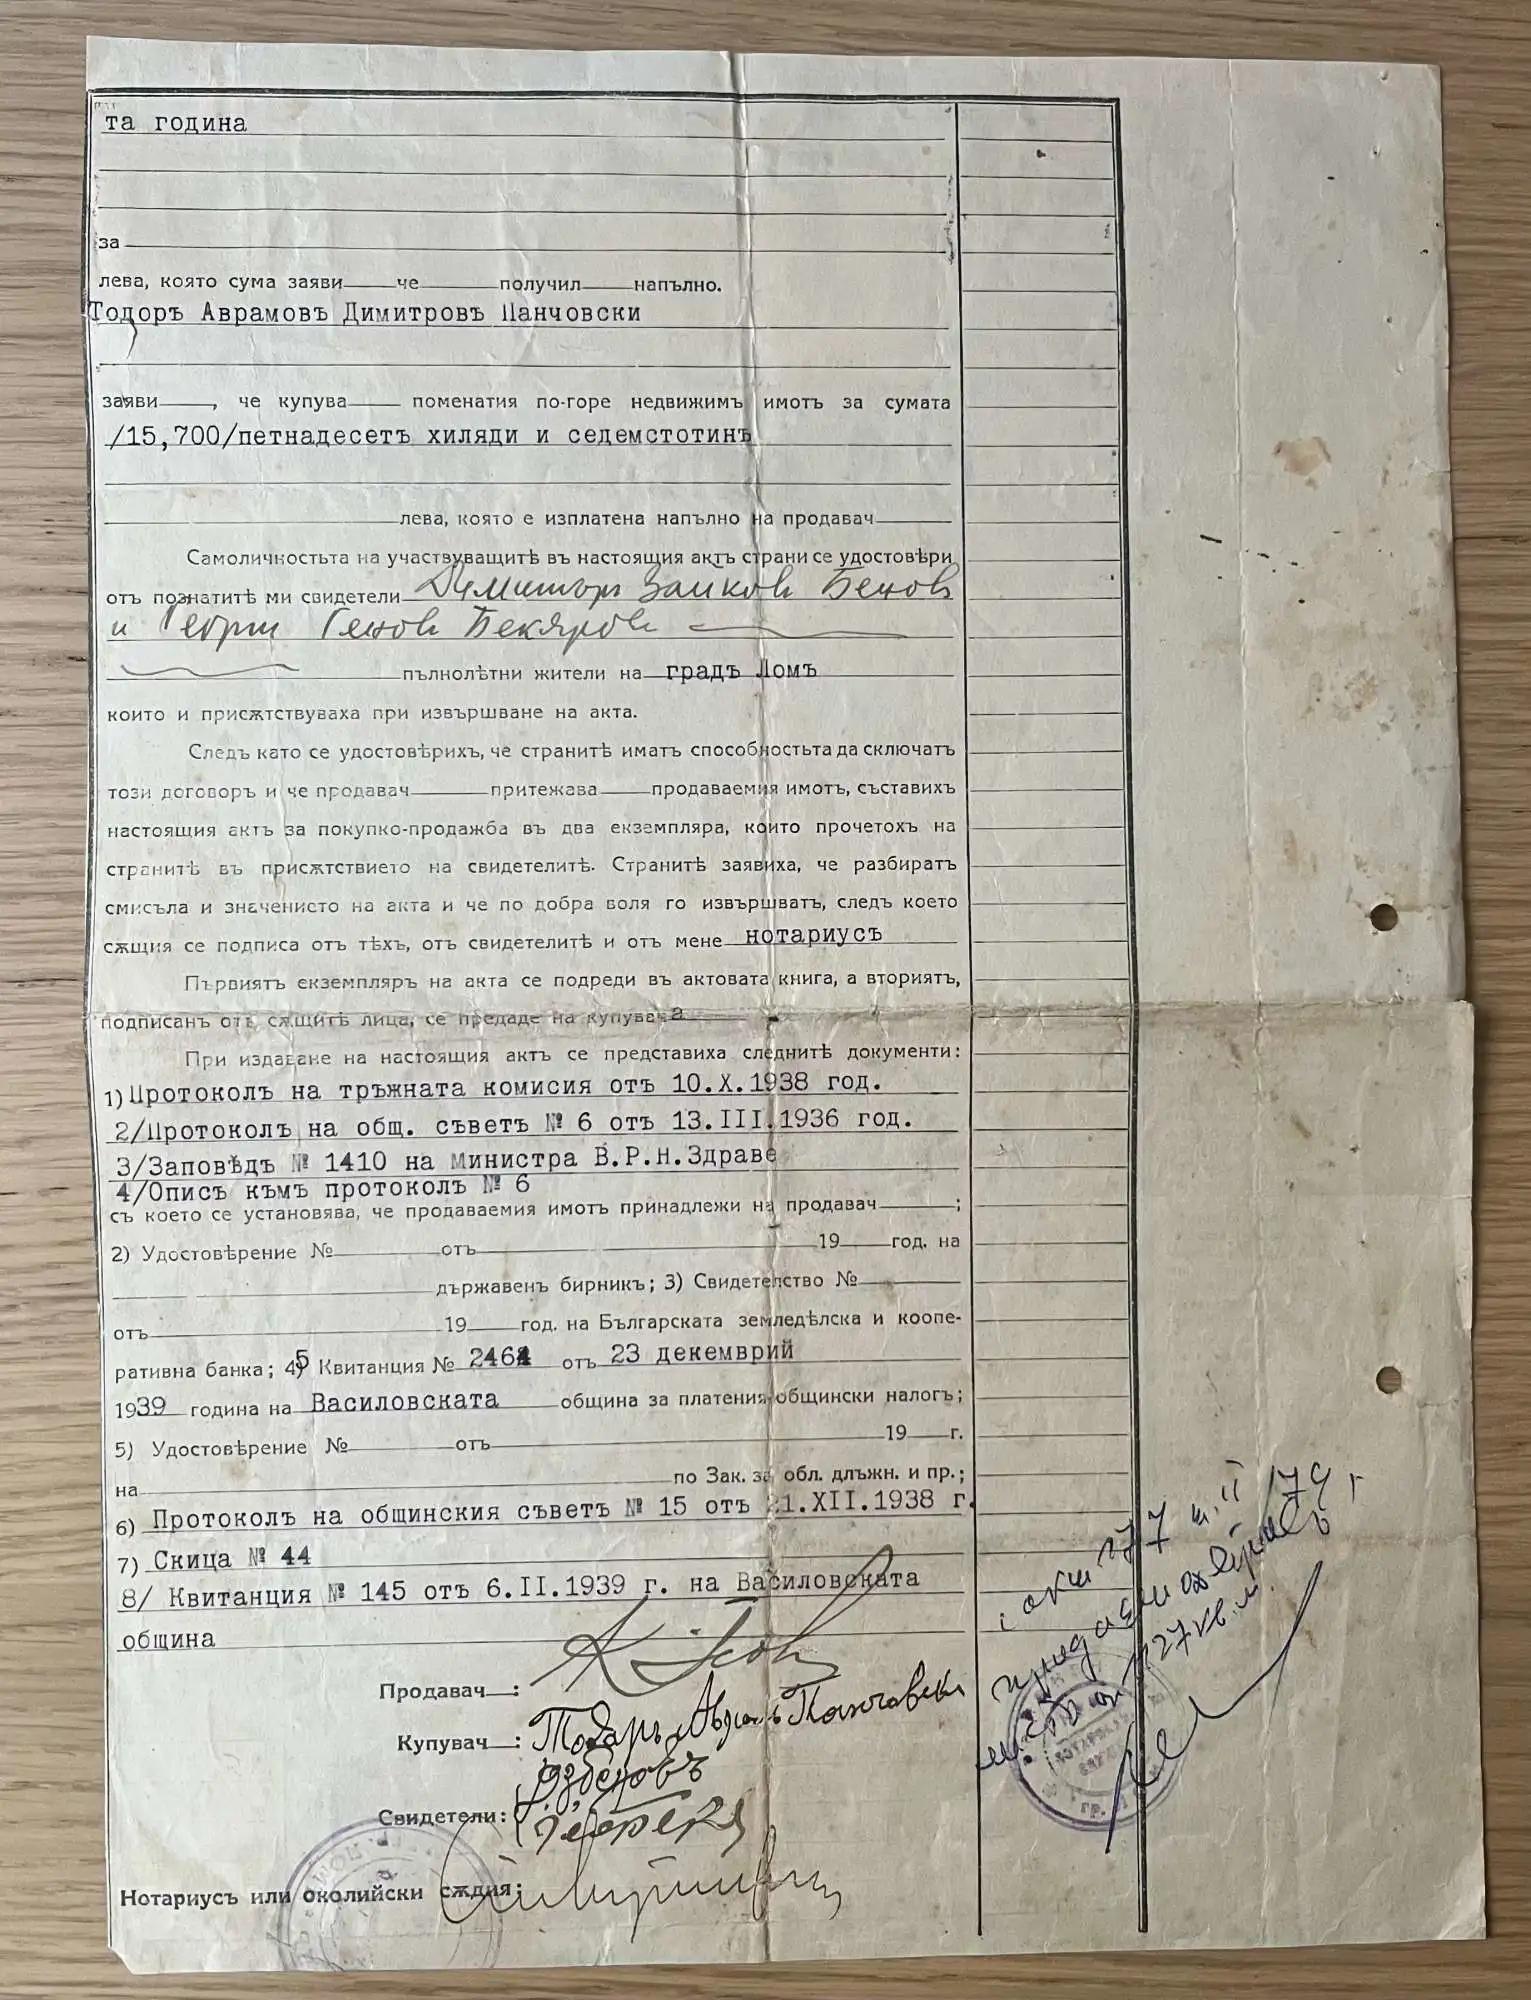 та година
за
лева, която сума заяви че получил напълно.
Тодоръ Аврамовъ Димитровъ Панчовски
заяви , че купува поменатия по-горе недвижимъ имотъ за сумата
/15,700/петнадесетъ хиляди и седемстотинъ
лева, която е изплатена напълно на продавач
Самоличностьта на участвуващитѣ въ настоящия актъ страни се удостовѣри
отъ познатитѣ ми свидетели Димитъръ Бенов
и Георги Генов Бекяров
пълнолѣтни жители на градъ Ломъ
които и присѫтствуваха при извършване на акта.
Следъ като се удостовѣрихъ, че странитѣ иматъ способностьта да сключатъ
този договоръ и че продавач притежава продаваемия имотъ, съставихъ
настоящия актъ за покупко-продажба въ два екземпляра, които прочетохъ на
странитѣ въ присѫтствието на свидетелитѣ. Странитѣ заявиха, че разбиратъ
смисъла и значението на акта и че по добра воля го извършватъ, следъ което
сѫщия се подписа отъ тѣхъ, отъ свидетелитѣ и отъ мене нотариусъ
Първиятъ екземпляръ на акта се подреди въ актовата книга, а вториятъ,
подписанъ отъ сѫщитѣ лица, се предаде на купувача
При издаване на настоящия актъ се представиха следнитѣ документи:
1) Протоколъ на тръжната комисия отъ 10.X.1938 год.
2/Протоколъ на общ. съветъ № 6 отъ 13.III.1936 год.
3/Заповѣдъ № 1410 на Министра В.Р.Н.Здраве
4/Описъ къмъ протоколъ № 6
съ което се установява, че продаваемия имотъ принадлежи на продавач ;
2) Удостовѣрение № отъ 19 год. на
държавенъ бирникъ; 3) Свидетелство №
отъ 19 год. на Българската земледѣлска и коопе-
ративна банка; 5) Квитанция № отъ 23 декемврий
1939 година на Василовската община за платения общински налогъ;
5) Удостовѣрение № отъ 19 г.
на по Зак. за обл. длъжн. и пр.;
6) Протоколъ на общинския съветъ № 15 отъ 21.XII.1938 г.
7) Скица № 44
8/ Квитанция № 145 отъ 6.II.1939 г. на Василовската
община
Продавач :
Купувач : Тодоръ Аврамовъ Панчовски
Свидетели:
Нотариусъ или околийски сѫдия: